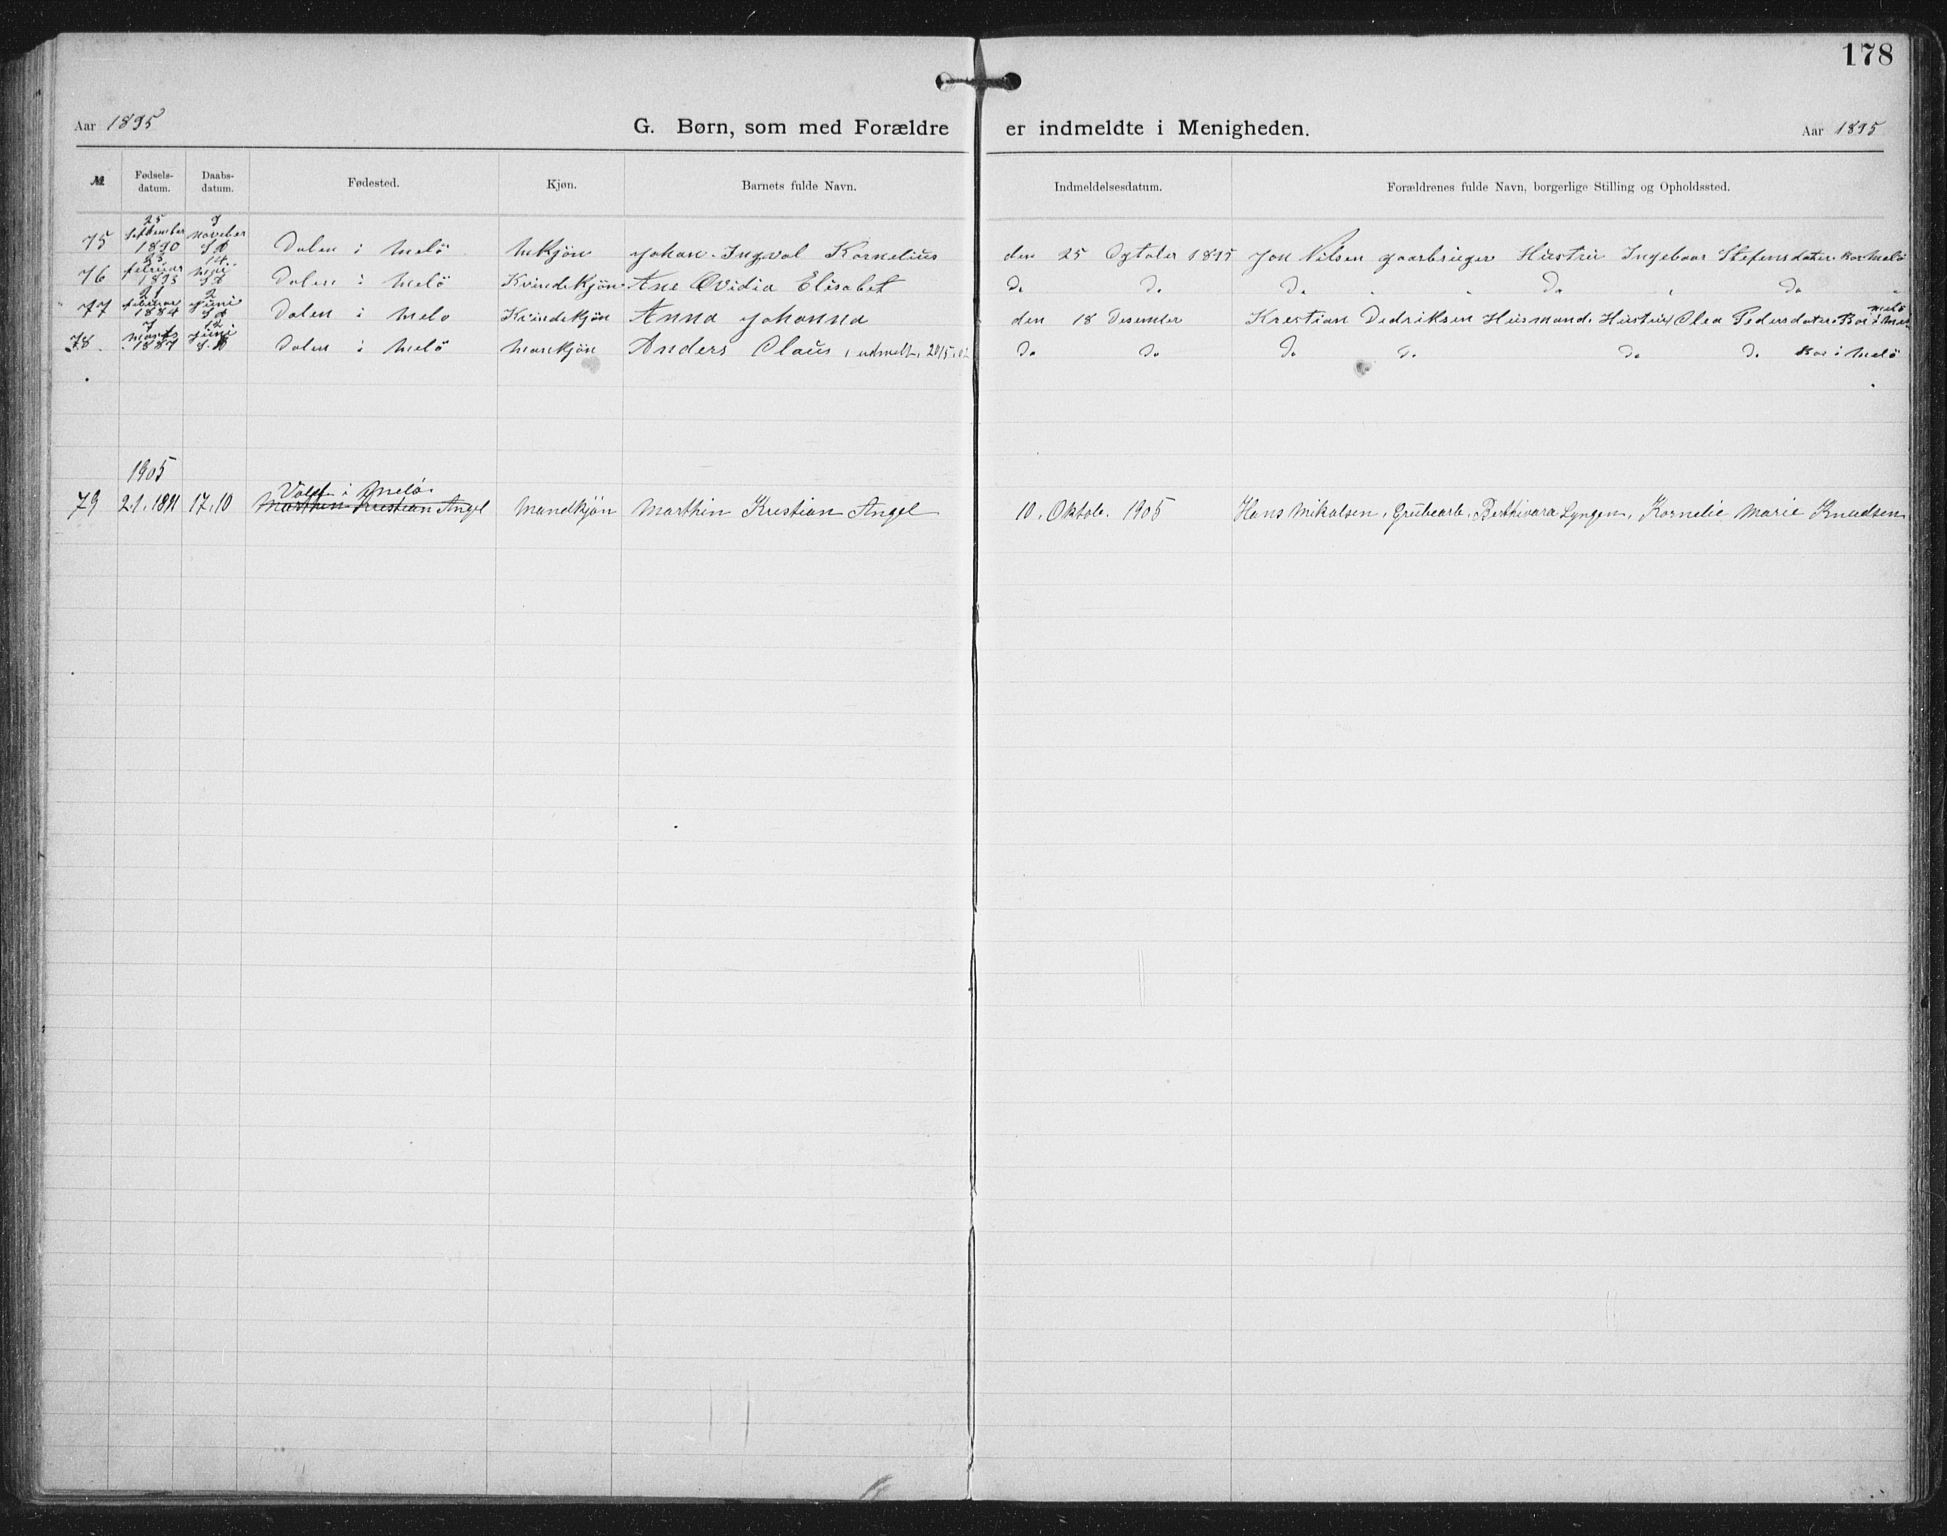 178
Aar 1895 G. Børn, som med Forældre er indmeldte i Menigheden. Aar 1895
№ Fødsels-datum. Daabs-datum. Fødested. Kjøn. Barnets fulde Navn. Indmeldelsesdatum. Forældrenes fulde Navn, borgerlige Stilling og Opholdssted.
75 25 September 1890 7 November Dalen i Melö Mkjøn Johan Ingval Kornelius den 25 Ogtober 1895 Jon Nilsen gaarbruger Hustru Ingeboar Stefensdater Bor Melö
76 23 februar 1893 14 Dalen i Melö Kvindekjøn Ane Ovidia Elisabet Do Do Do Do Do
77 februar 1884 2 Juni Dalen i Melo Kvindekjøn Anna Johanna den 18 Desember Krestian Dedriksen Husmand Hustru Olea Pedersdater Bor i Melö
78 7 Marts 1887 12 Juni Dalen i Melö Mankjøn Anders Claus, udmeldt, 20/5 Do Do Do Do Do Do Bor i Melö
1905
Vold i Melö
79 2.1.1891 17.10 Marthin Kristian Angel Mandkjøn Marthin Kristian Angel 10. Oktobe. 1905 Hans Mikalsen, Grubearb. Lyngen, Kornelie Marie Knudsen